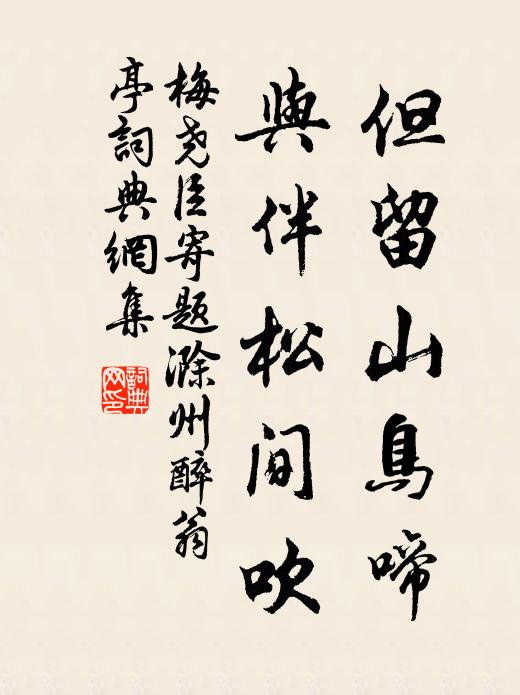 但留山鳥啼
與伴松間吹
梅尧臣寄题滁州醉翁
亭詞典網集
詞典
网印